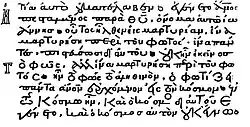 τία αὐτὸ οὐ κατέλαβεν. ἐγένετο ἄνος ἀ
πεσταλμένος παρὰ θυ, ὄνομα αὐτῷ ἰω
άννης· οὗτος ἦλθεν εἰς μαρτυρίαν, ἵνα
μαρτυρήσῃ περὶ τοῦ φωτός· ἵνα πάν
τες πιστεύσωσι δι' αὐτοῦ· οὐκ ἦν ἐκεῖνος
τὸ φῶς, ἀλλ' ἵνα μαρτυρήσῃ περὶ τοῦ φω
τός· ἦν τὸ φῶς τὸ ἀληθινὸν, ὃ φωτίζει
πάντα ἄνον ἐρχόμενον εἰς τὸν κόσμον· ἐν
τῷ κόσμῳ ἦν, καὶ ὁ κόσμος δι' αὐτοῦ ἐγέ
νετο, καὶ ὁ κόσμος αὐτὸν οὐκ ἔγνω